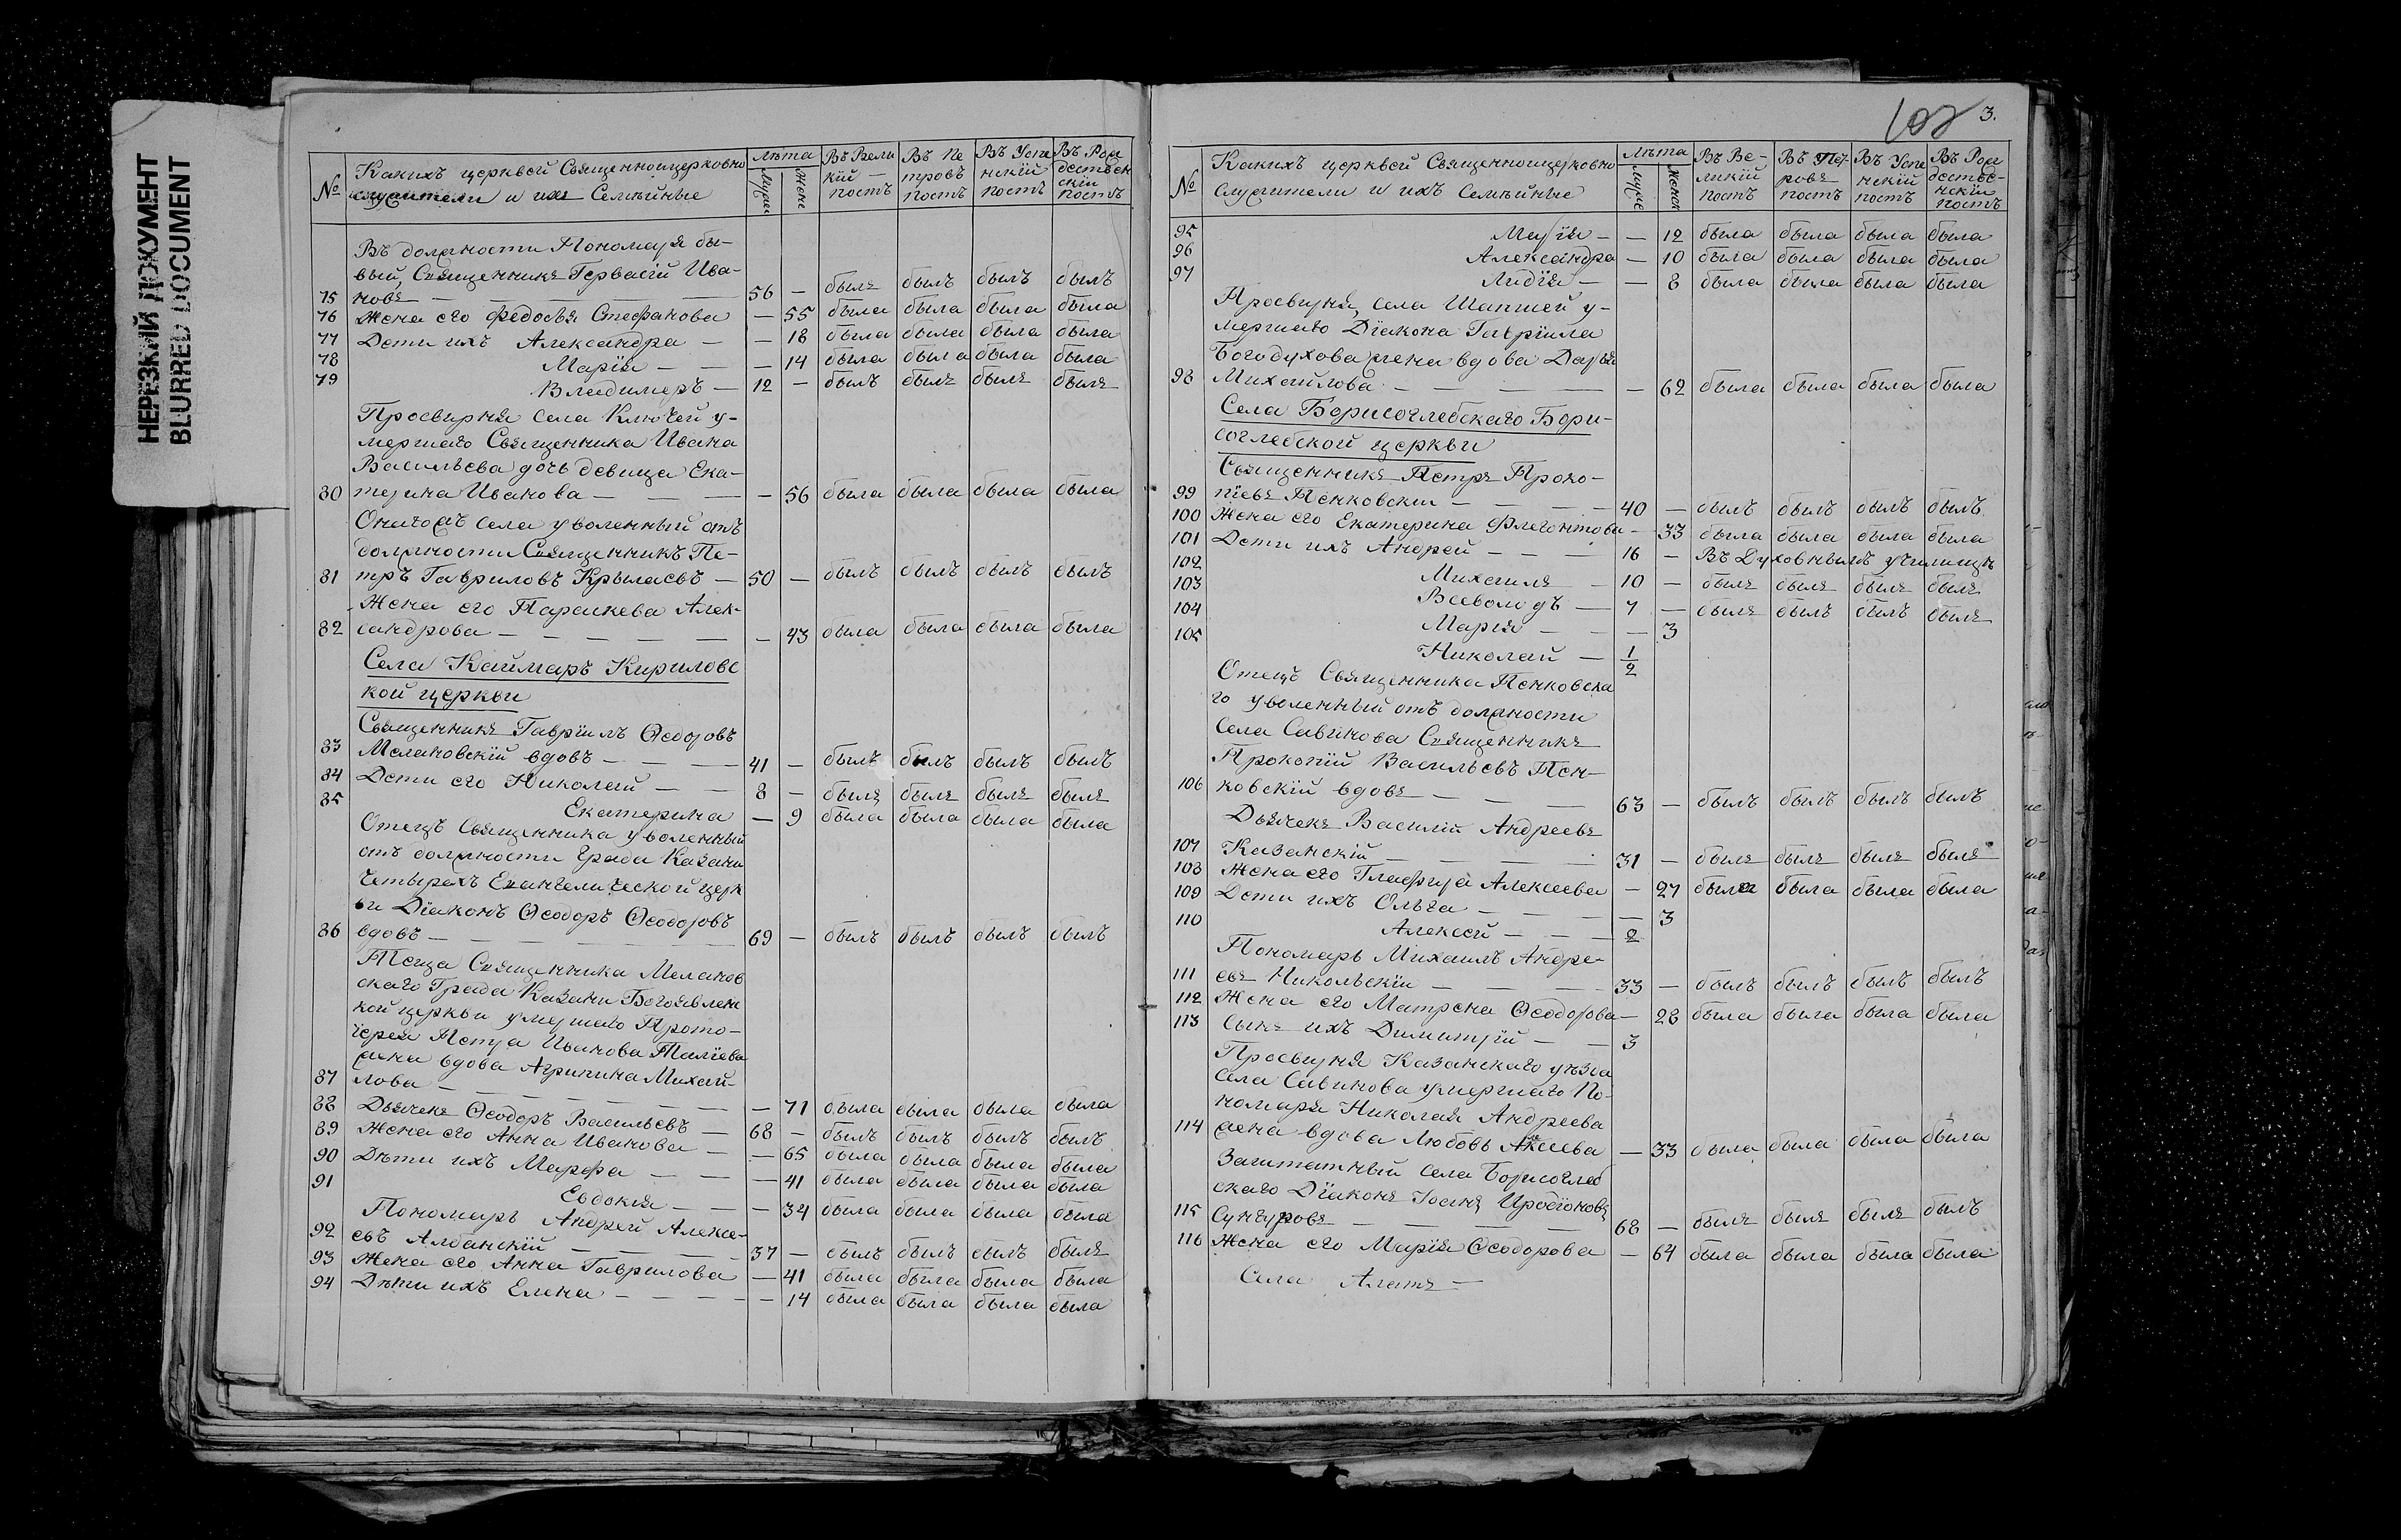 НЕРЕЗКИЙ ДОКУМЕНТ
BLURRED DOCUMENT
№ Какихъ церквей Священноицерковно Лѣта Въ Вели Въ Пе Въ Успе Въ Рож
служители и ихъ Семѣйные Мужес Жене кій постъ тровъ постъ нскій постъ дественскій постъ
Въ должности Пономаря бы-
вый, Священникъ Гервасій Ива-
75 новъ — 56 — былъ былъ былъ былъ
76 Жена его Федосья Стефанова — 55 была была была была
77 Дети ихъ Александра — — 18 была была была была
78 Марія — — 14 была была была была
79 Владимеръ — 12 — былъ былъ былъ былъ
Просвирня села Ключей у-
мершаго Священника Ивана
Васильева дочь девица Ека-
80 терина Иванова — — 56 была была была была
Онагожъ села уволенный отъ
должности Священникъ Пе-
81 тръ Гавриловъ Крылаевъ — 50 — былъ былъ былъ былъ
Жена его Параскева Алек-
82 сандрова — — 43 была была была была
Села Каймаръ Кириловс
кой церкви
Священникъ Гавріилъ Ѳеодоровъ
83 Мелановскій вдовъ — 41 — былъ былъ былъ былъ
84 Дети его Николай — 8 — былъ былъ былъ былъ
85 Екатерина — 9 была была была была
Отецъ Священника уволенный
отъ должности града Казани
Четырехъ Евангелической церк
ви Діаконъ Ѳеодоръ Ѳеодоровъ
86 вдовъ — 69 — былъ былъ былъ былъ
Теща Священника Меланов
скаго Града Казани Богоявлен
кой церкви умершаго Прото-
іерея Петра Иванова Таліева
жена вдова Агрипина Михай-
87 лова — — 71 была была была была
88 Дьячекъ Ѳеодоръ Васильевъ — 68 — былъ былъ былъ былъ
89 Жена его Анна Иванова — — 65 была была была была
90 Дѣти ихъ Марфа — — 41 была была была была
91 Евдокія — — 34 была была была была
Пономарь Андрей Алексе-
92 евъ Албанскій — 37 — былъ былъ былъ былъ
93 Жена его Анна Гаврилова — 41 была была была была
94 Дѣти ихъ Елена — — 14 была была была была
102 3.
№ Какихъ церквей Священноицерковно Лѣта Въ Ве- Въ Пет Въ Успе Въ Рож
служители и ихъ Семѣйные Мужес Женск ликій постъ ровъ постъ нскій постъ дестве-нскій постъ
95 Марія — — 12 была была была была
96 Александра — 10 была была была была
97 Лидія — — 8 была была была была
Просвирня, села Шапшей у-
мершаго Діакона Гавріила
Богодухова жена вдова Дарья
98 Михайлова — — 62 была была была была
Села Борисоглебскаго Бори-
соглебской церкви
Священникъ Петръ Проко-
99 піевъ Пенковскій — 40 — былъ былъ былъ былъ
100 Жена его Екатерина Флегонтова — 33 была была была была
101 Дети ихъ Андрей — 16 — Въ Духовномъ училищѣ
102 Михаилъ — 10 — былъ былъ былъ былъ
103 Всеволодъ — 7 — былъ былъ былъ былъ
104 Марія — — 3
105 Николай — 1/2
Отецъ Священника Пенковска
го уволенный отъ должности
Села Савинова Священникъ
Прокопій Васильевъ Пен-
106 ковскій вдовъ — 63 — былъ былъ былъ былъ
Дьячекъ Василій Андреевъ
107 Казанскій — 31 — былъ былъ былъ былъ
108 Жена его Глафира Алексеева — 27 была была была была
109 Дети ихъ Ольга — — 3
110 Алексей — 2
Пономарь Михаилъ Андре-
111 евъ Никольскій — 33 — былъ былъ былъ былъ
112 Жена его Матрена Ѳеодорова — 28 была была была была
113 Сынъ ихъ Димитрій — 3
Просвирня Казанскаго уѣзда
Села Савинова умершаго По-
номаря Николая Андреева
114 жена вдова Любовь Алексеева — 33 была была была была
Заштатный села Борисоглеб
скаго Діаконъ Іоанъ Иродіоновъ
115 Сунгуровъ — 68 — былъ былъ былъ былъ
116 Жена его Марія Ѳеодорова — 64 была была была была
Села Алатъ —